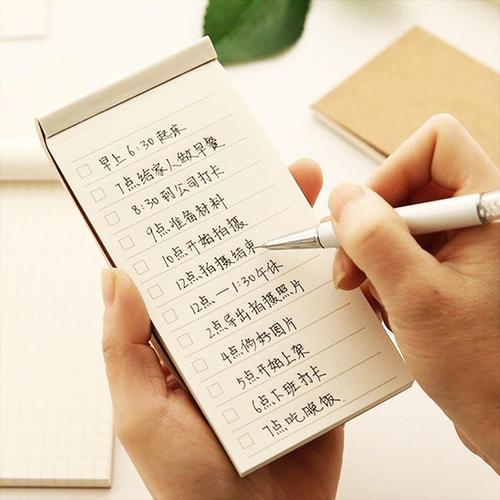 早上6:30起床
7点给家人做早餐
8:30到公司打卡
9点准备材料
10点开始拍摄
12点拍摄结束
12点—1:30午休
2点导出拍摄照片
4点修好图片
5点开始上架
6点下班打卡
7点吃晚饭